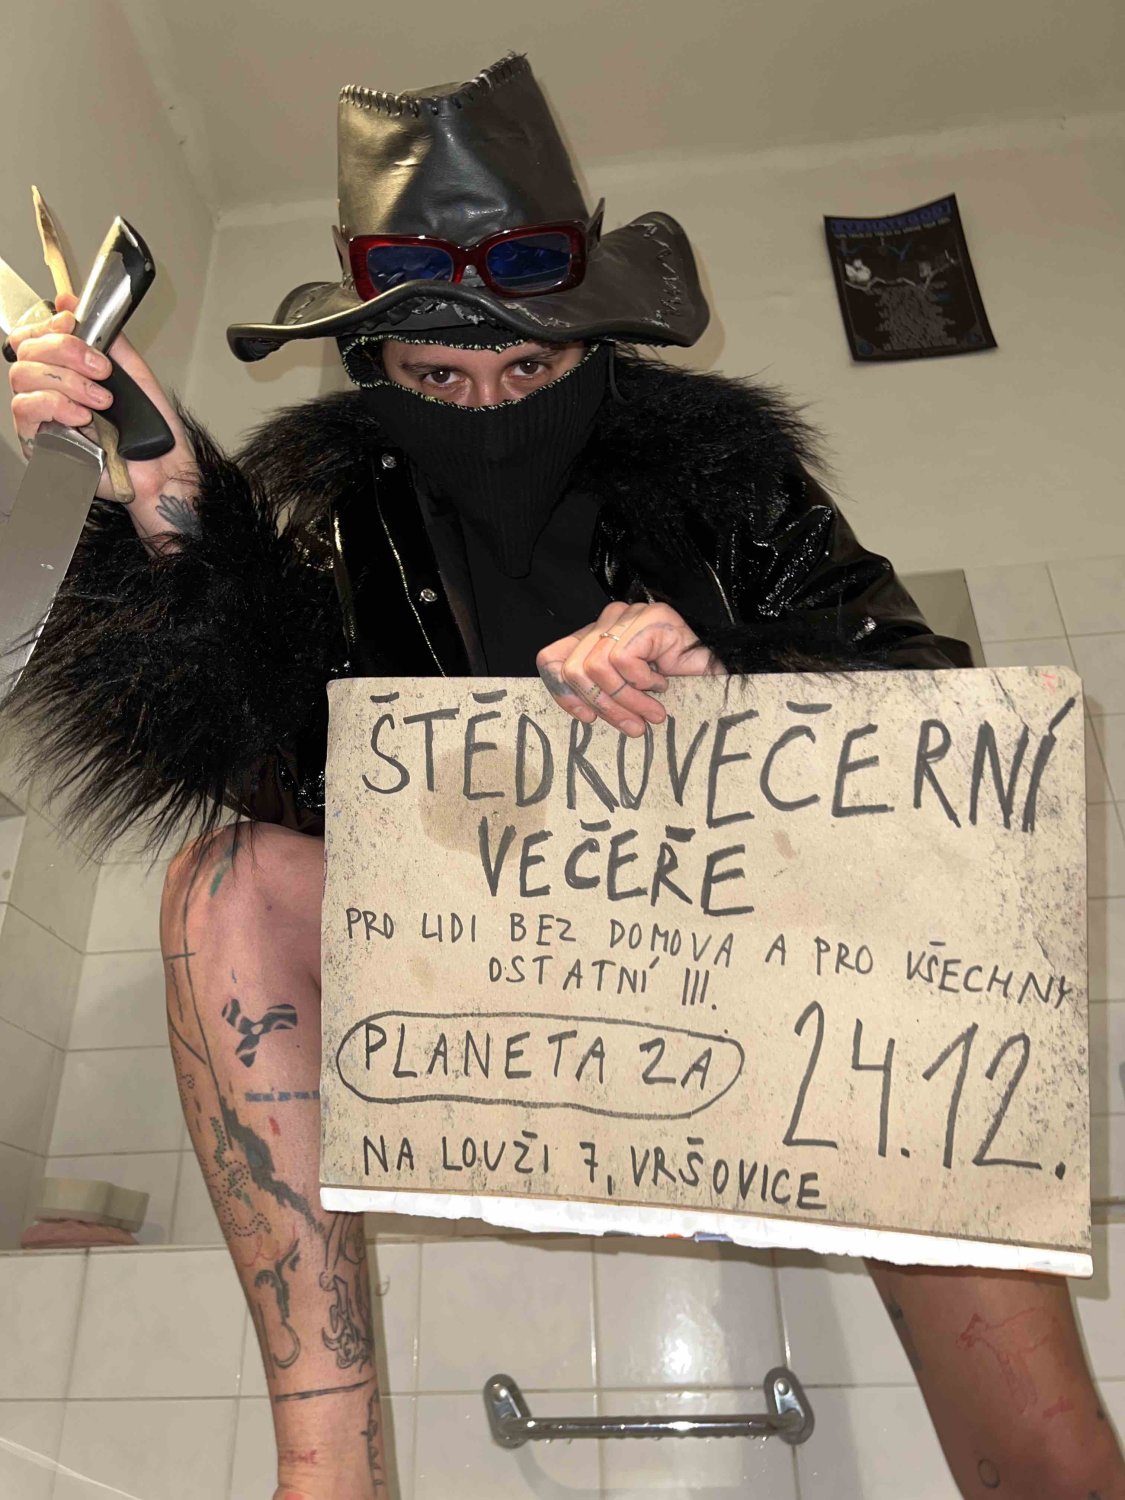 ŠTĚDROVEČERNÍ
VEČEŘE
PRO LIDI BEZ DOMOVA A PRO VŠECHNY
OSTATNÍ !!!
PLANETA ZA
24.12.
NA LOUŽI 7, VRŠOVICE